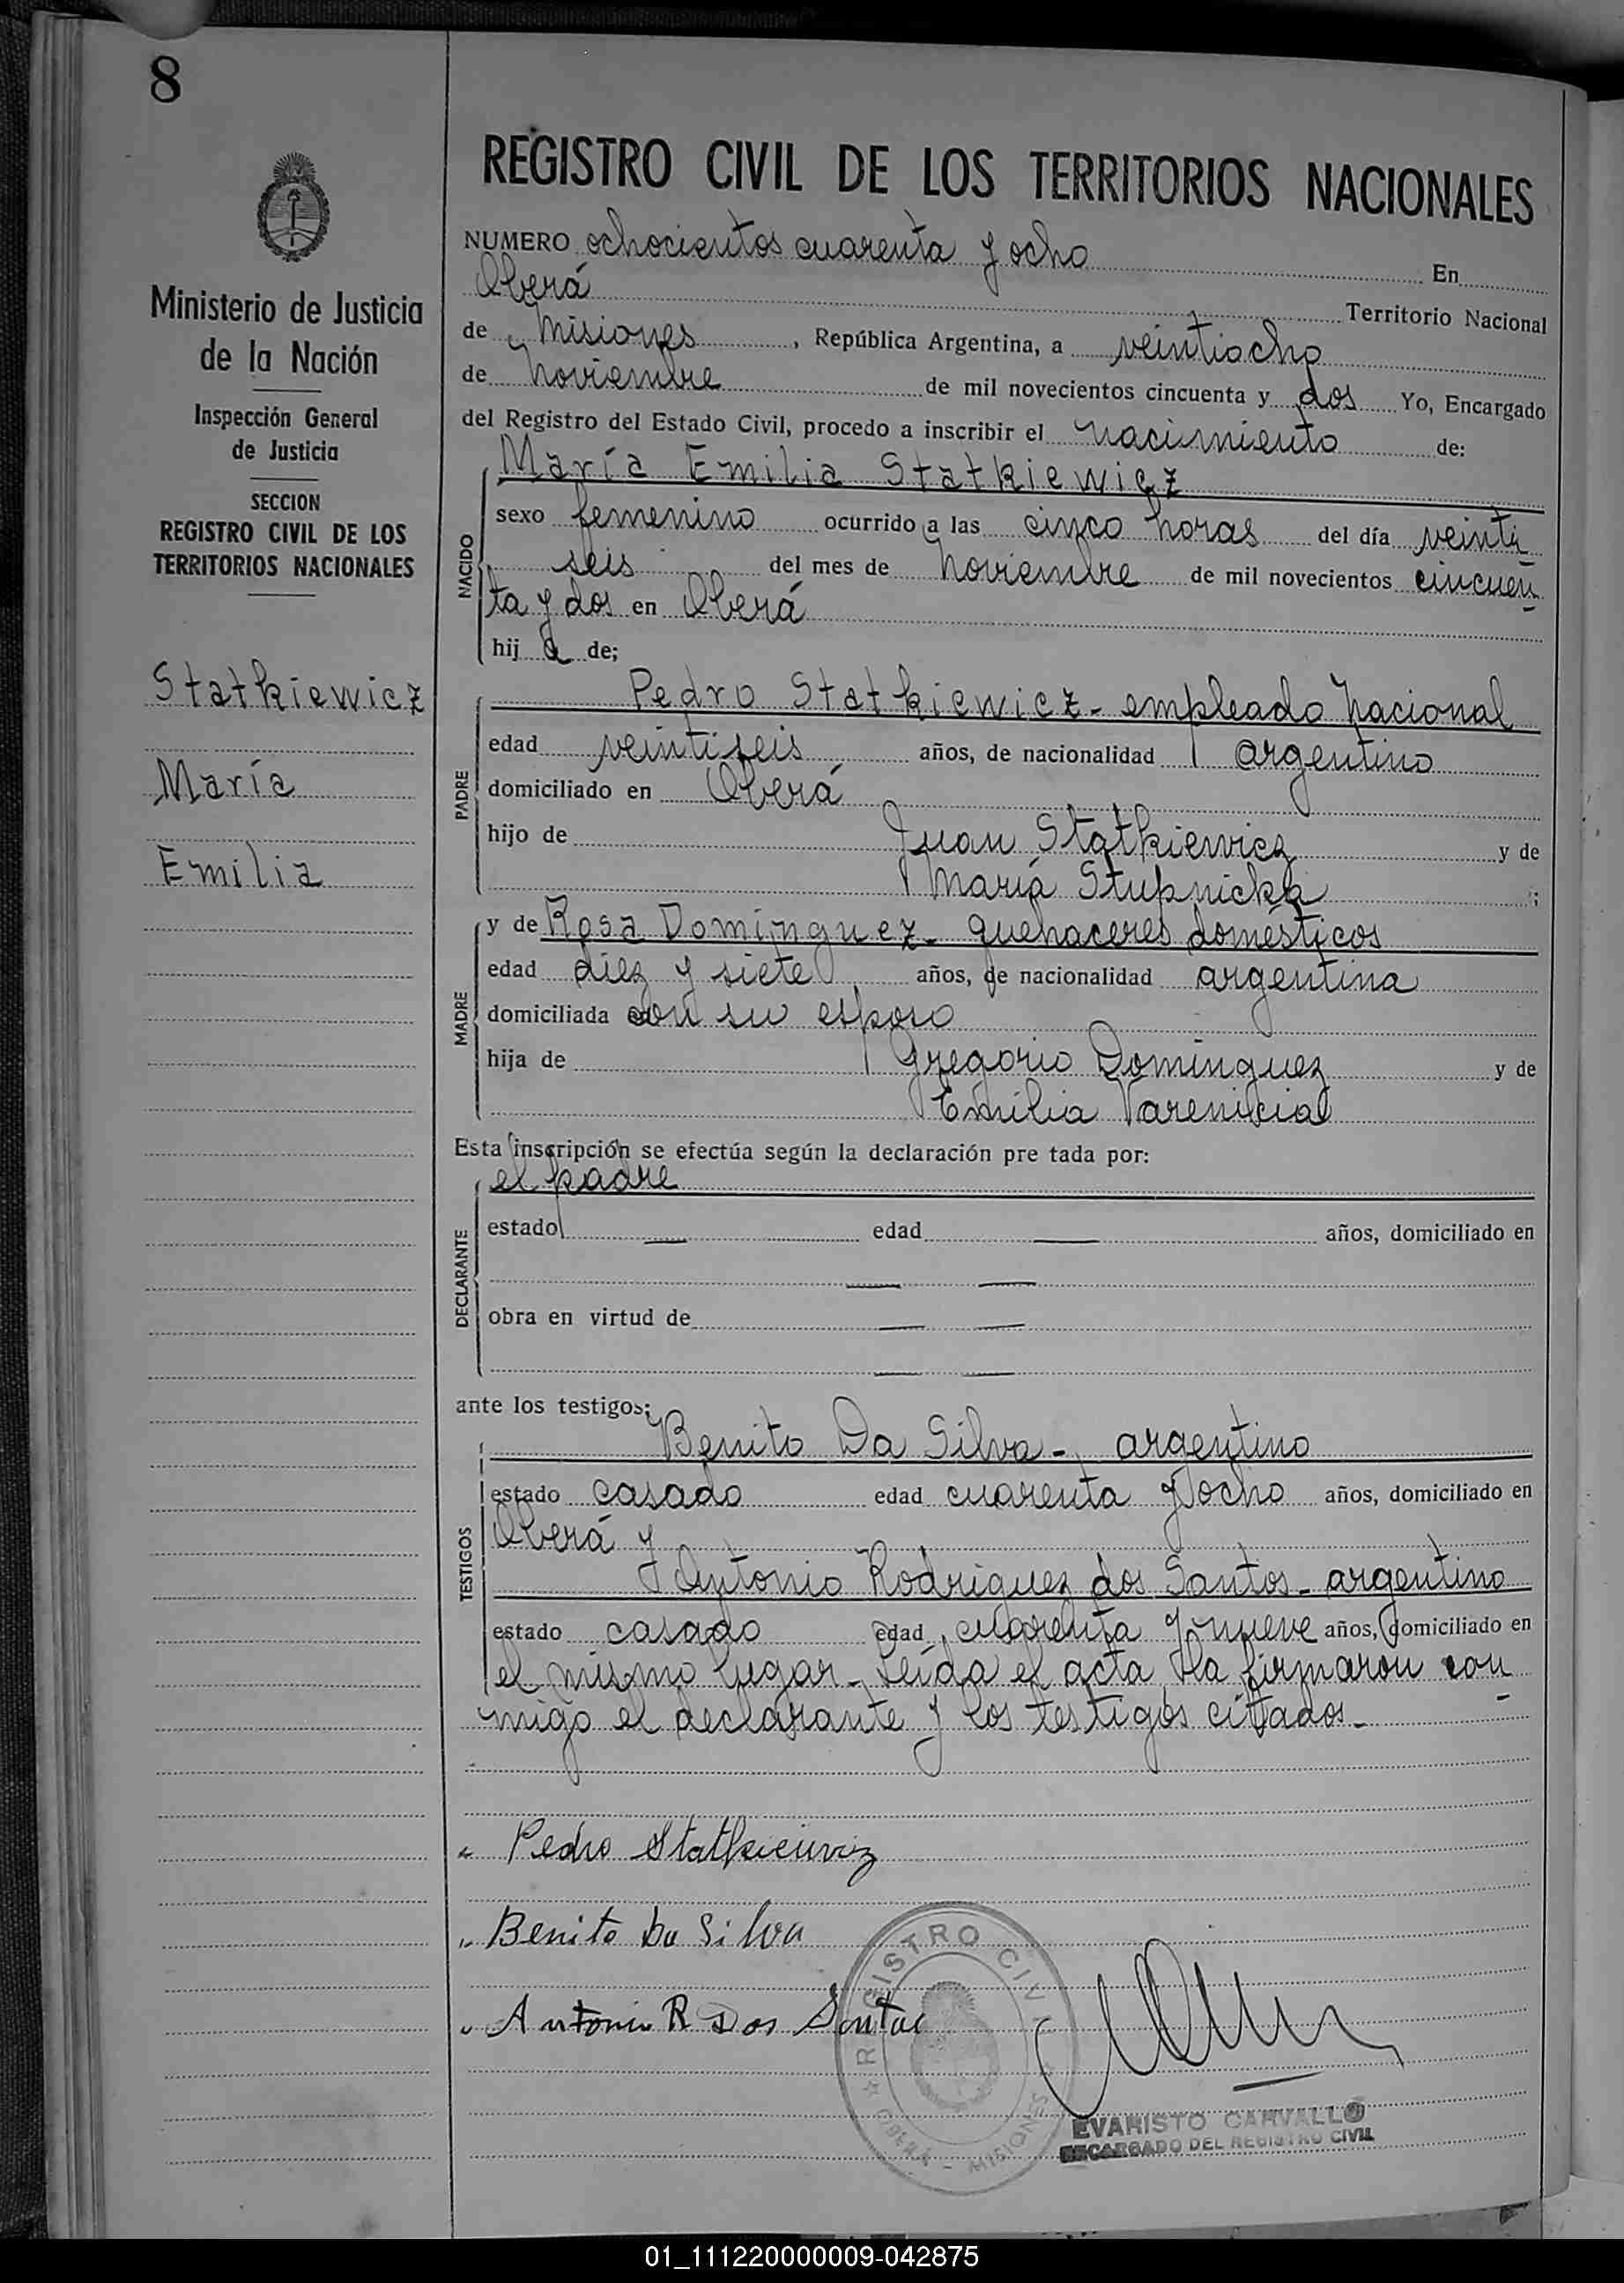 8
Ministerio de Justicia
de la Nación
Inspección General
de Justicia
SECCION
REGISTRO CIVIL DE LOS
TERRITORIOS NACIONALES
Statkiewicz
María
Emilia
REGISTRO CIVIL DE LOS TERRITORIOS NACIONALES
NUMERO ochocientos cuarenta y ocho En
Oberá Territorio Nacional
de Misiones, República Argentina, a veintiocho
de Noviembre de mil novecientos cincuenta y dos Yo, Encargado
del Registro del Estado Civil, procedo a inscribir el nacimiento de:
María Emilia Statkiewicz
NACIDO
sexo femenino ocurrido a las cinco horas del día veinti
seis del mes de Noviembre de mil novecientos cincuen
ta y dos en Oberá
hij a de;
Pedro Statkiewicz - empleado Nacional
PADRE
edad veintiseis años, de nacionalidad argentino
domiciliado en Oberá
hijo de Juan Statkiewicz y de
María Stupnicka;
y de Rosa Dominguez - quehaceres domésticos
MADRE
edad diez y siete años, de nacionalidad argentina
domiciliada con su esposo
hija de Gregorio Dominguez y de
Emilia
Esta inscripción se efectúa según la declaración pre tada por:
el padre
DECLARANTE
estado — edad — años, domiciliado en
— —
obra en virtud de — —
— —
ante los testigos;
Benito Da Silva - argentino
TESTIGOS
estado casado edad cuarenta y ocho años, domiciliado en
Oberá y
Antonio Rodriguez dos Santos - argentino
estado casado edad cuarenta y nueve años, domiciliado en
el mismo lugar - Leída el acta la firmaron con
migo el declarante y los testigos citados -
Pedro Statkiewicz
Benito Da Silva
Antonio R Dos Santos
REGISTRO CIVIL
OBERÁ - MISIONES
EVARISTO CARVALLO
ENCARGADO DEL REGISTRO CIVIL
01_111220000009-042875